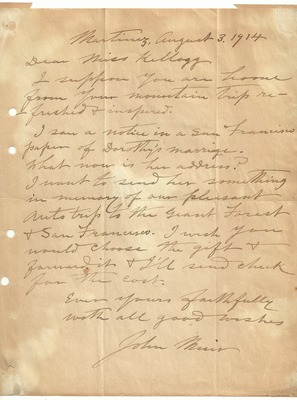 Martinez, August 3, 1914
Dear Miss Kellogg
I suppose you are home
from your mountain trip re-
freshed & inspired.
I saw a notice in a San Francisco
paper of Dorothy's marrige.
What now is her address?
I want to send her something
in memory of our pleasant
Auto trip to the Giant Forest
& San Francisco. I wish you
would choose the gift &
forward it & I'll send check
for the cost.
Ever yours faithfully
with all good wishes
John Muir